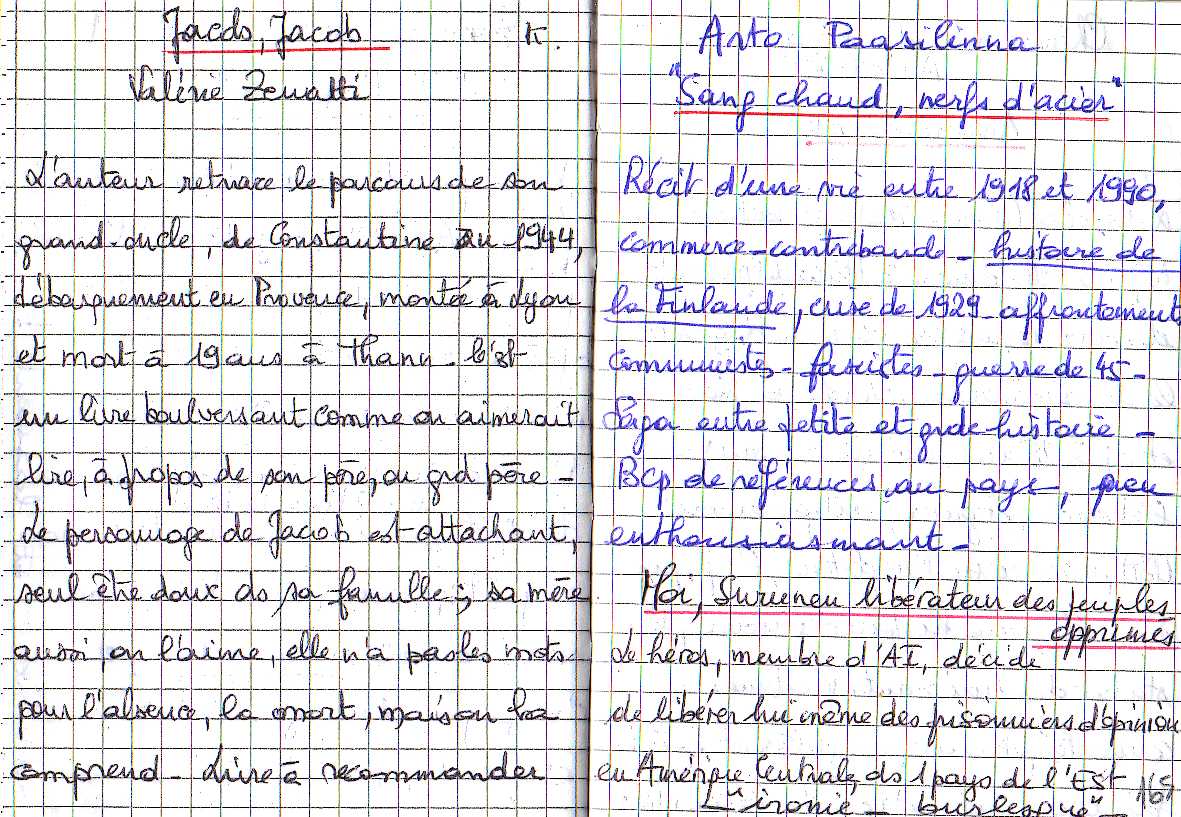 Jacob, Jacob K.
Valérie Zenatti
L'auteur retrace le parcours de son
grand-oncle, de Constantine en 1944,
débarquement en Provence, montée à Lyon
et mort à 19 ans à Thann. C'est
un livre boulversant comme on aimerait
lire, à propos de son père, ou grd père -
Le personnage de Jacob est attachant,
seul être doux ds sa famille ; sa mère
aussi, on l'aime, elle n'a pas les mots
pour l'absence, la mort, mais on la
comprend - Livre à recommander
Arto Paasilinna
"Sang chaud, nerfs d'acier"
Récit d'une vie entre 1918 et 1990,
commerce - contrebande - histoire de
la Finlande, crise de 1929 - affrontement
communistes - fascistes - guerre de 45 -
Saga entre petite et grde histoire -
Bcp de références au pays, peu
enthousiasmant -
Moi, Surunen libérateur des peuples
opprimés
Le héros, membre d'AI, décide
de libérer lui même des prisonniers d'opinion
en Amérique Centrale, ds 1 pays de l'Est
L"ironie - burlesque" -
169